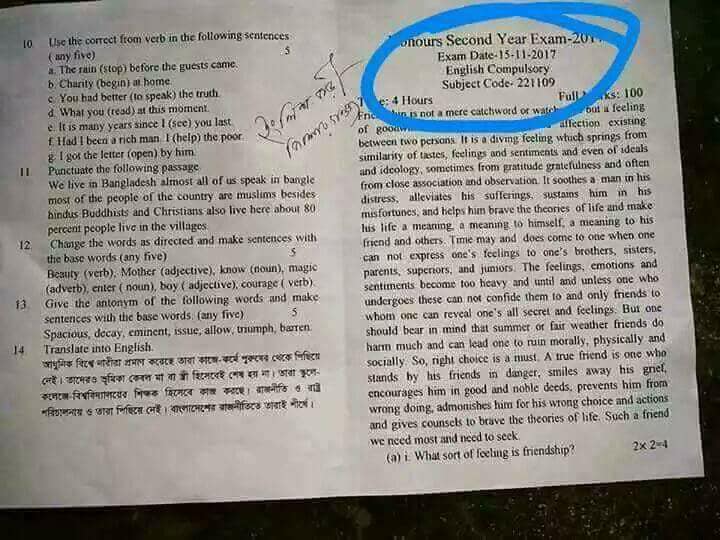 10. Use the correct from verb in the following sentences
( any five) 5
a. The rain (stop) before the guests came.
b. Charity (begin) at home.
c. You had better (to speak) the truth.
d. What you (read) at this moment.
e. It is many years since I (see) you last.
f. Had I been a rich man. I (help) the poor.
g. I got the letter (open) by him.
11. Punctuate the following passage.
We live in Bangladesh almost all of us speak in bangle
most of the people of the country are muslims besides
hindus Buddhists and Christians also live here about 80
percent people live in the villages.
12. Change the words as directed and make sentences with
the base words (any five) 5
Beauty (verb), Mother (adjective), know (noun), magic
(adverb), enter ( noun), boy ( adjective), courage ( verb).
13. Give the antonym of the following words and make
sentences with the base words. (any five) 5
Spacious, decay, eminent, issue, allow, triumph, barren.
14. Translate into English.
আধুনিক বিশ্বে নারীরা প্রমাণ করেছে তারা কাজে-কর্মে পুরুষের থেকে পিছিয়ে
নেই। তাদেরও ভূমিকা কেবল মা বা স্ত্রী হিসেবেই শেষ হয় না। তারা স্কুল-
কলেজ-বিশ্ববিদ্যালয়ের শিক্ষক হিসেবে কাজ করছে। রাজনীতি ও রাষ্ট্র
পরিচালনায় ও তারা পিছিয়ে নেই। বাংলাদেশের রাজনীতিতে তারাই শীর্ষে।
Honours Second Year Exam-201
Exam Date-15-11-2017
English Compulsory
Subject Code- 221109
Time: 4 Hours Full Marks: 100
is not a mere catchword or but a feeling
of affection existing
between two persons. It is a diving feeling which springs from
similarity of tastes, feelings and sentiments and even of ideals
and ideology, sometimes from gratitude gratefulness and often
from close association and observation. It soothes a man in his
distress, alleviates his sufferings, sustains him in his
misfortunes, and helps him brave the theories of life and make
his life a meaning, a meaning to himself, a meaning to his
friend and others. Time may and does come to one when one
can not express one's feelings to one's brothers, sisters,
parents, superiors, and juniors. The feelings, emotions and
sentiments become too heavy and until and unless one who
undergoes these can not confide them to and only friends to
whom one can reveal one's all secret and feelings. But one
should bear in mind that summer or fair weather friends do
harm much and can lead one to ruin morally, physically and
socially. So, right choice is a must. A true friend is one who
stands by his friends in danger, smiles away his grief,
encourages him in good and noble deeds, prevents him from
wrong doing, admonishes him for his wrong choice and actions
and gives counsels to brave the theories of life. Such a friend
we need most and need to seek.
(a) i. What sort of feeling is friendship? 2x 2=4